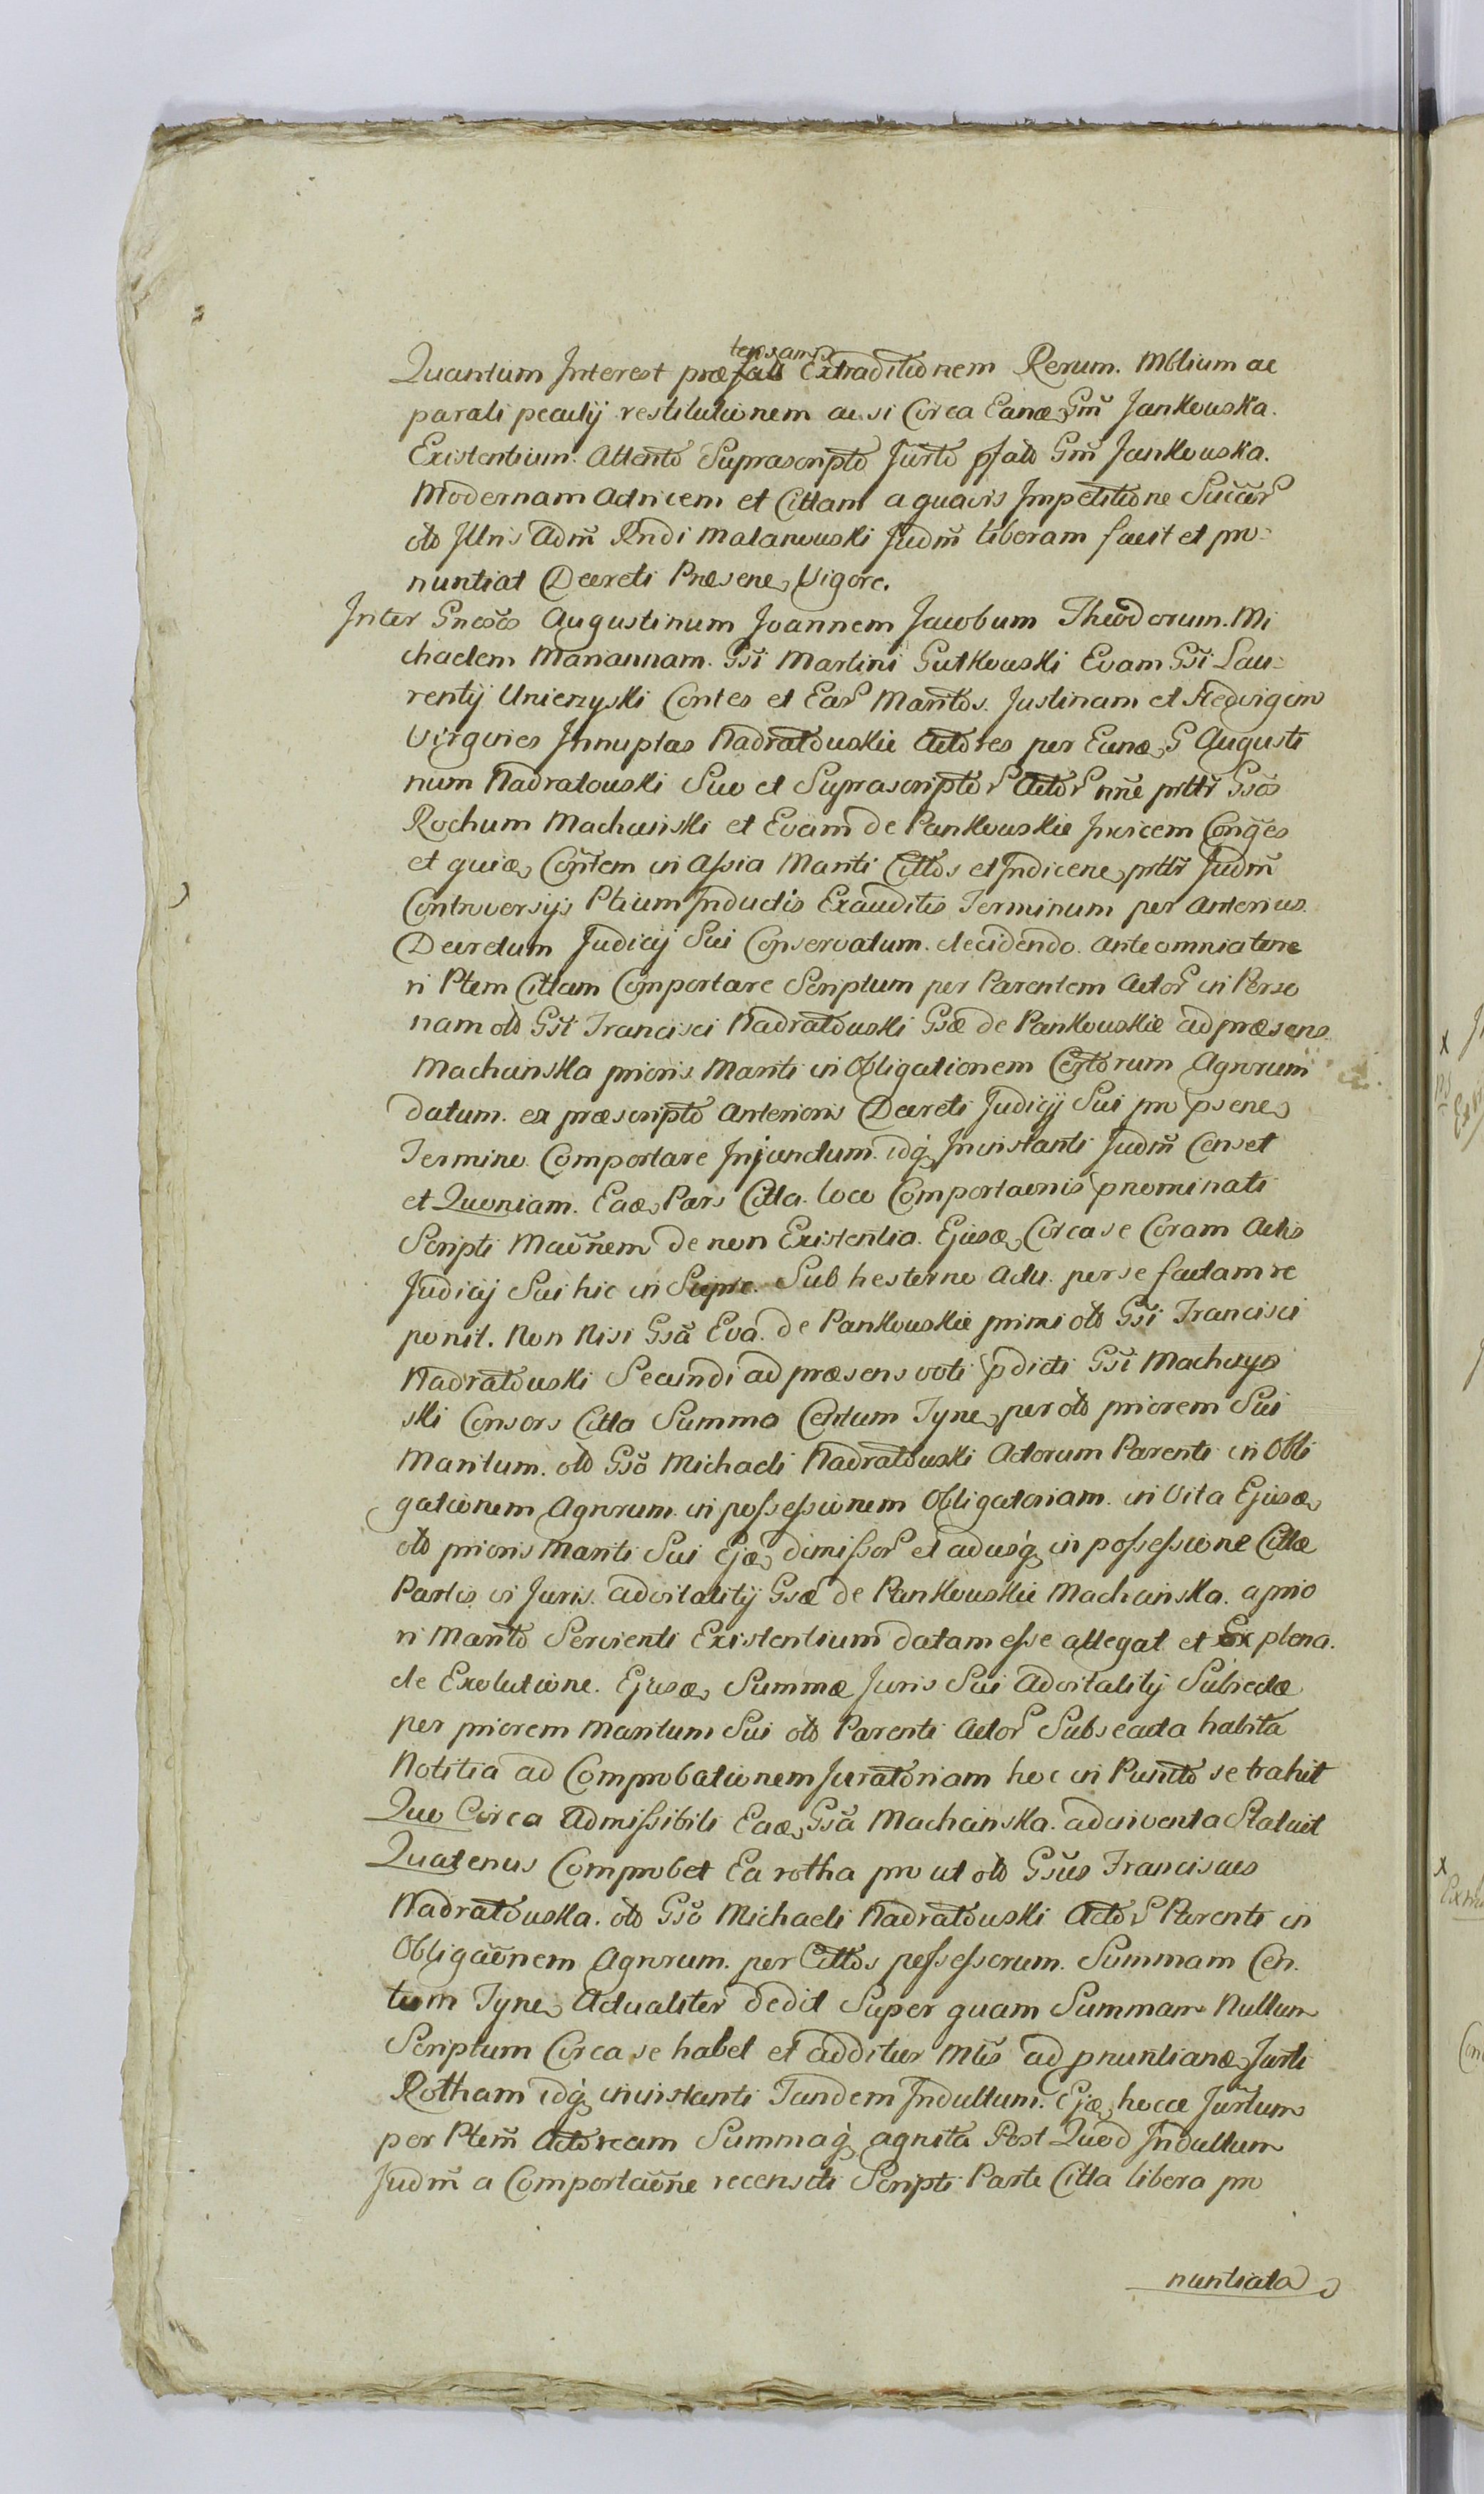 Quantum Interest præ tensam Extraditionem Rerum Mblium ac
parati peculij restitutionem ac si Circa Eanď Gm̃ Jankowska
Existentium Attento Suprascripto Jurto pfato Gm̃ Jankowska
Modernam Actricem et Cittam a quavis Impetitione Succor
olo Jllris Adm̃ Rndi Malanowski Judm̃ liberam facit et pro
nuntiat Decreti Præsenť Vigore.
Inter Gnesõs Augustinum Joannem Jacobum Theodorum Mi
chaelem Mariannam Gsi Martini Gutkowski Evam Gsi Lau
rentij Unierzyski Contes et Ear Maritos Justinam et Hedvigim
Virgines Innuptas Nadratowskie Actores per Eunď G Augusti
num Nadratowski Suo et Suprascriptor Actor nñe prttr̃ Gsõs
Rochum Machcinski et Evam de Pankowskie Invicem Conges
et quidď Cõntem in Assia Mariti Cittos et Indicenť prttr̃ Judm̃
Controversijs Ptium Inductis Exauditis Terminum per Anterius
Decretum Judicij Sui Conservatum decidendo ante omnia tene
ri Ptem Cittam Comportare Scriptum per Parentem Actor in Perso
nam olo Gsi Francisci Nadratowski Gsæ de Pankowskie ad præsens
Machcinska prioris Mariti in Obligationem Certorum Agrorum
datum ex præscripto Anterioris Decreti Judicij Sui pro psenť
Termino Comportare Injunctum idq̃ Ininstanti Judm̃ Censet
et Quoniam Eadď Pars Citta loco Comportaonis pnominati
Scripti Maõnem de non Existentia Ejusdď Circa se Coram Actis
Judicij Sui hic in Sub hesterno Actu per se factam re
ponit. Non Nisi Gsa Eva de Pankowskie primi olo Gsi Francisci
Nadratowski Secundi ad præsens voti pdicti Gsi Machczyn
ski Consors Citta Summa Centum Tynť per olo priorem Sui
Maritum olo Gso Michaeli Nadratowski Actorum Parenti in Obli
gationem Agrorum in possessionem Obligatoriam in Vita Ejusdď
olo prioris Mariti Sui Ejď dimissor et adusq̃ in possessione Cittæ
Partis vi Juris advitalitij Gsæ de Pankowskie Machcinska a prio
ri Marito Servienti Existentium datam esse allegat et Ex plena
de Exolutione Ejusdď Summæ Juris Sui Advitalitij Subiectæ
per priorem Maritum Sui olo Parenti Actor Subsecuta habita
Notitia ad Comprobationem Juratoriam hoc in Puncto se trahit
Quo Circa Admissibili Eadď Gsa Machcinska adinventa Statuit
Quatenus Comprobet Ea rotha pro ut olo Gsus Franciscus
Nadratowska olo Gso Michaeli Nadratowski Actor Parenti in
Obligaõnem Agrorum per Cittos possessorum Summam Cen
tum Tynť Actualiter dedit Super quam Summam Nullum
Scriptum Circa se habet et additur Mtis ad pnuntianď Jurti
Rotham idq̃ ininstanti Tandem Indultum Ejď hocce Jurtum
per Ptem̃ Actoream Summaq̃ agnita Post Quod Indultum
Judm̃ a Comportaõne recensiti Scripti Parte Citta libera pro
nuntiata